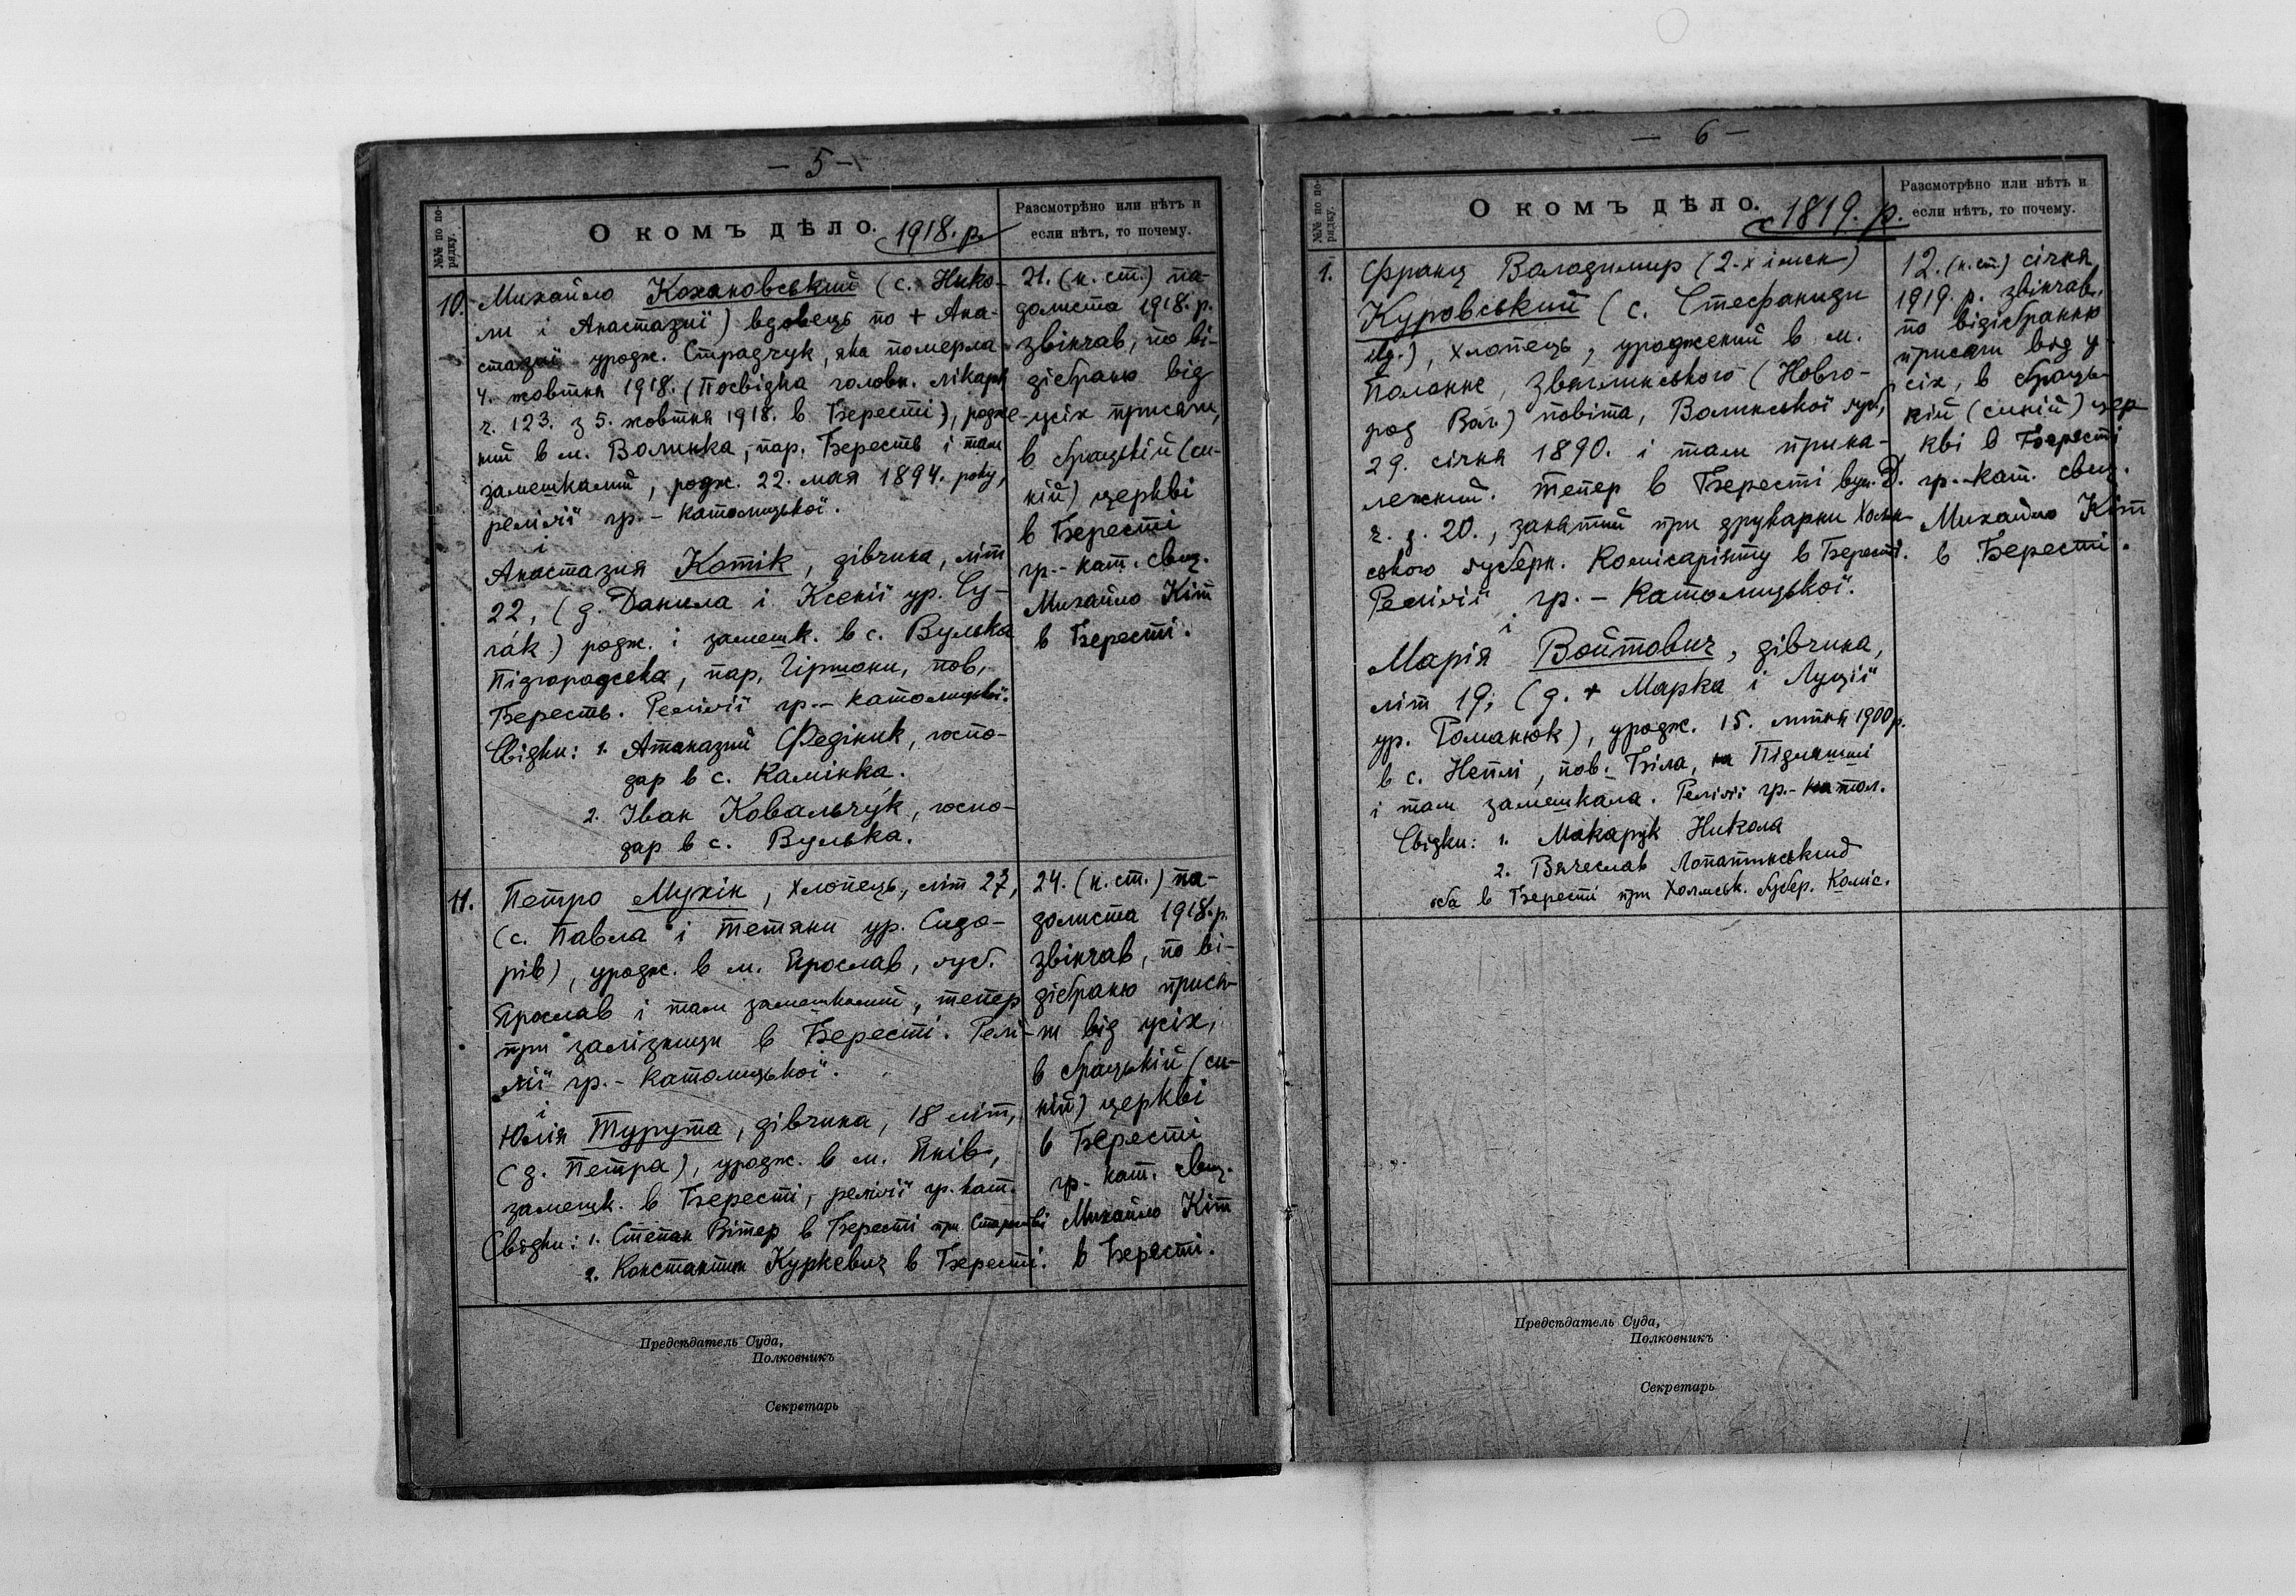 — 5 —
№№ по по-
рядку.
О КОМЪ ДѢЛО. 1918. р.
Разсмотрѣно или нѣтъ и
если нѣтъ, то почему.
10. Михайло Кохановський (с. Нико-
ли і Анастазиї) вдовець по + Ана-
стазиї уродж. Страдчук, яка померла
4. жовтня 1918. (Посвідка головн. лікаря
ч. 123. з 5. жовтня 1918. в Берестї), родже-
ний в м. Волинка, пар. Бересть і там
замешкалий, родж. 22. мая 1894. року,
релїґії гр. - католицької.
і
Анастазия Котік, дівчина, лїт
22, (д. Данила і Ксенії ур. Су-
гак) родж. і замешк. в с. Вулька
Підгородска, пар. Гіршони, пов.
Бересть. Релїґії гр. - католицької.
Свідки: 1. Атаназий Федіник, госпо-
дар в с. Камінка.
2. Іван Ковальчук, госпо-
дар в с. Вулька.
21. (н. ст.) па-
долиста 1918. р.
звінчав, по ві-
дібраню від
усіх присяги,
в брацькій (си-
ній) церкві
в Берестї
гр. - кат. свящ.
Михайло Кіт
в Берестї.
11. Петро Мухін, хлопець, лїт 27,
(с. Павла і Тетяни ур. Сидо-
рів), уродж. в м. Ярослав, ґуб.
Ярослав і там замешкалий, тепер
при залїзници в Берестї. Релї-
ґії гр. - католицької.
і
Юлїя Турута, дівчина, 18 лїт,
(д. Петра), уродж. в м. Янів,
замешк. в Берестї, релїґії гр. кат.
Свідки: 1. Степан Вітер в Берестї при Старостві
2. Константин Куркевич в Берестї.
24. (н. ст.) па-
долиста 1918. р.
звінчав, по ві-
дібраню прися-
ги від усіх,
в брацькій (си-
ній) церкві
в Берестї
гр. - кат. свящ.
Михайло Кіт
в Берестї.
Предсѣдатель Суда,
Полковникъ
Секретарь
— 6 —
№№ по по-
рядку.
О КОМЪ ДѢЛО. 1819. р.
Разсмотрѣно или нѣтъ и
если нѣтъ, то почему.
1. Франц Володимир (2-х імен)
Куровський (с. Стефаниди
), хлопець, уроджений в м.
Полонне, Звягелинського (Новго-
род Вол.) повіта, Волинської ґуб.,
29. січня 1890. і там прина-
лежний. Тепер в Берестї вул. Д.
ч. д. 20., занятий при друкарни Холм-
ського ґуберн. Комісаріяту в Берестї.
Релїґії гр. - католицької.
і
Марія Войтович, дівчина,
лїт 19; (д. + Марка і Луції
ур. Романюк), уродж. 15. лютня 1900 р.
в с. Неплї, пов. Біла, на Підляшші
і там замешкала. Релїґії гр. - катол.
Свідки: 1. Макарук Никола
2. Вячеслав Лопатинський
оба в Берестї при Холмськ. Ґубер. Коміс.
12. (н. ст.) січня
1919. р. звінчав,
по відібранню
присяги від у-
сіх, в браць-
кій (синій) цер-
кві в Берестї
гр. - кат. свящ.
Михайло Кіт
в Берестї.
Предсѣдатель Суда,
Полковникъ
Секретарь